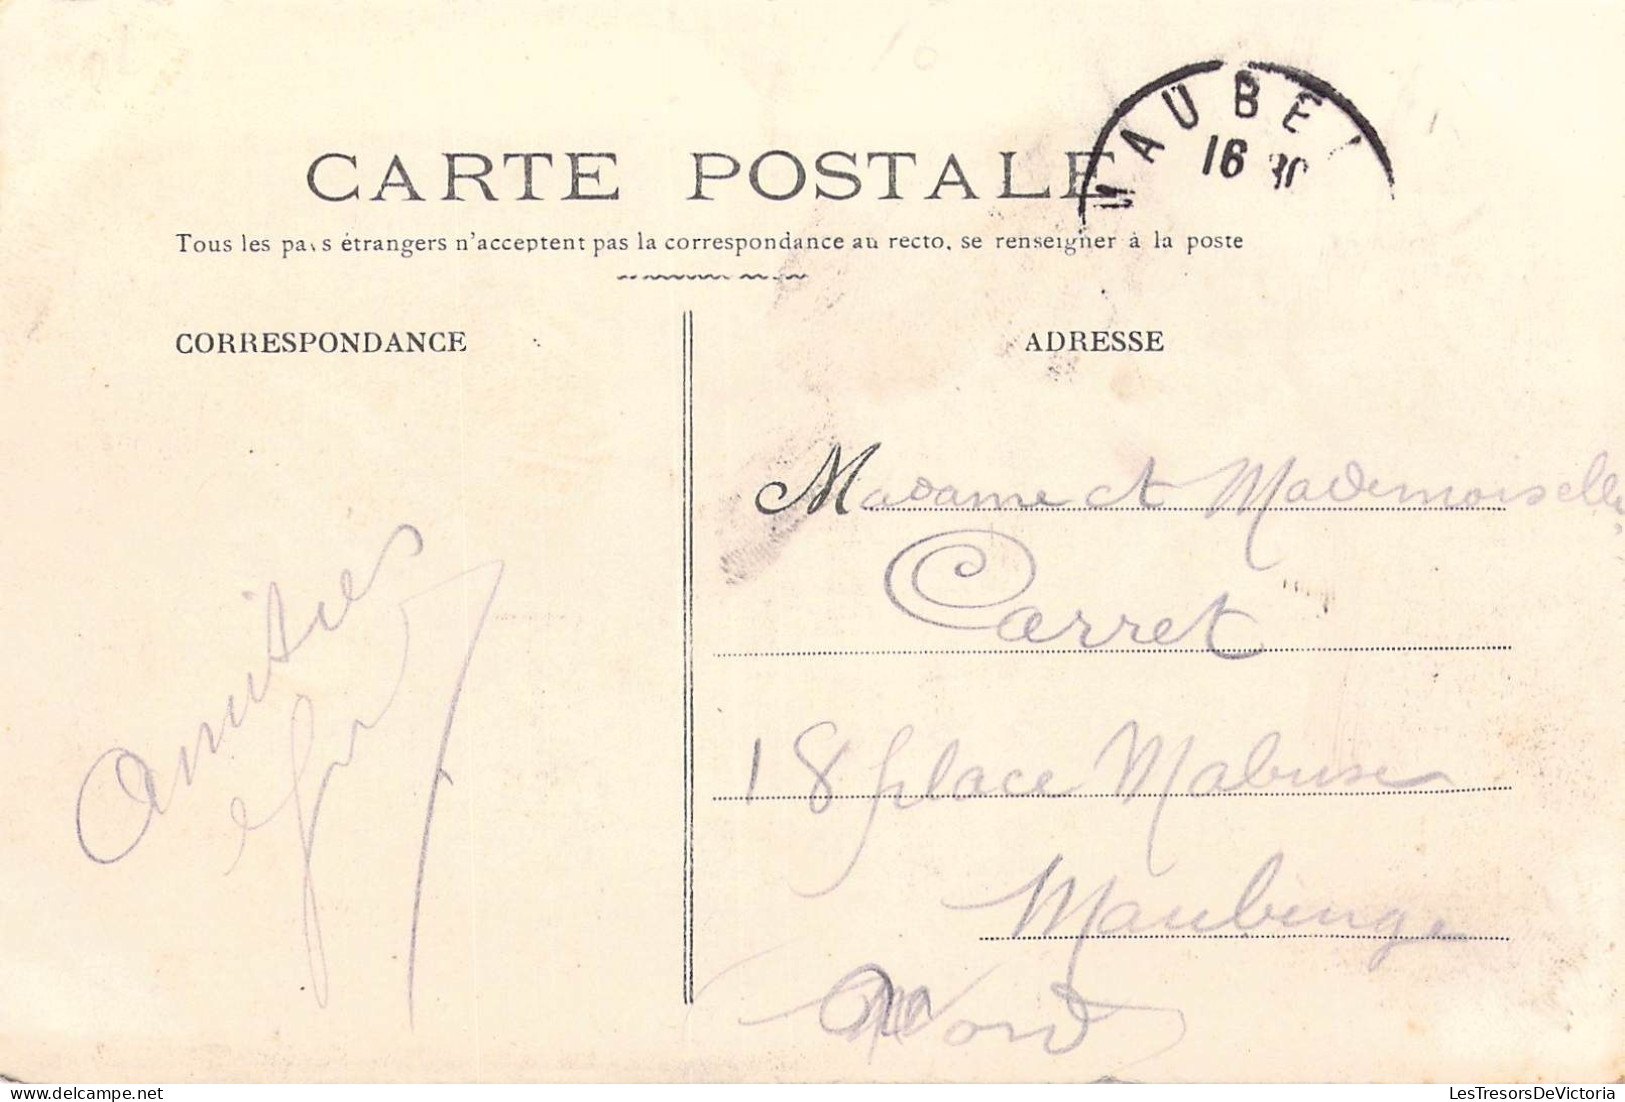 MAUBE
16 30
CARTE POSTALE
Tous les pays étrangers n'acceptent pas la correspondance au recto, se renseigner à la poste
CORRESPONDANCE
Amitiés
ADRESSE
Madame et Mademoiselle
Carret
18 place Mabuse
Maubeuge
Nord
LesTresorsDeVictoria